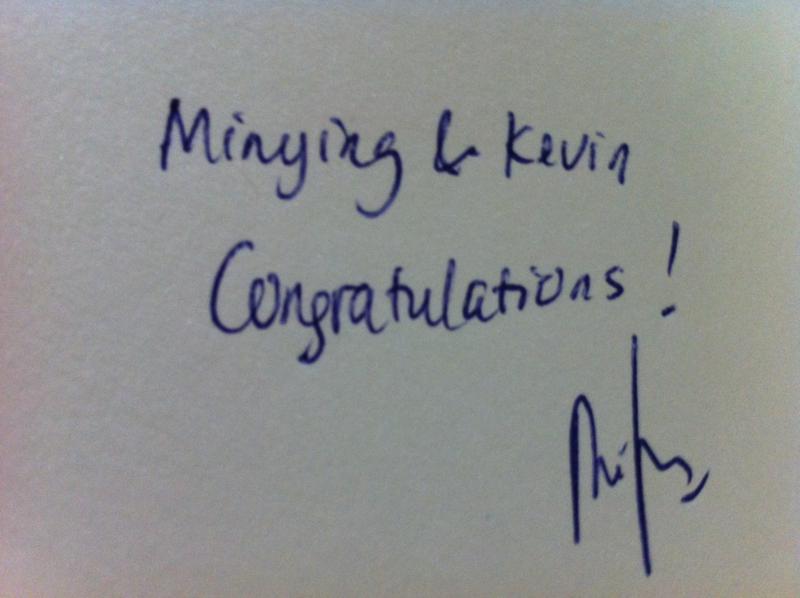 Minying & Kevin
Congratulations!